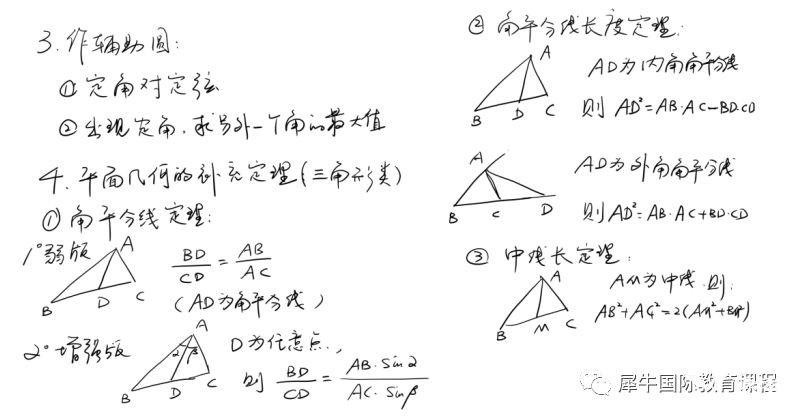 3. 作辅助圆:
① 定角对定弦
② 出现定角, 求另外一个角的最大值
4. 平面几何的补充定理(三角形类)
① 角平分线定理:
1° 弱版
A
B
D
C
BD/CD = AB/AC
(AD为角平分线)
2° 增强版
A
α β
B
D
C
D为任意点,
则 BD/CD = AB·sinα/AC·sinβ
② 角平分线长度定理:
A
B
D
C
AD为内角角平分线
则 AD²=AB·AC-BD·CD
A
B
C
D
AD为外角角平分线
则AD²=AB·AC+BD·CD
③ 中线长定理:
A
B
M
C
AM为中线.则:
AB²+AC²=2(AM²+BM²)
犀牛国际教育课程